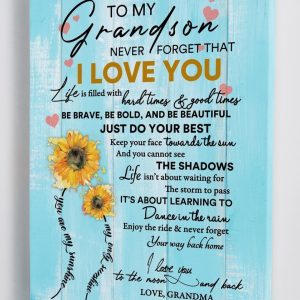 TO MY
Grandson
NEVER FORGET THAT
I LOVE YOU
Life is filled with hard times & good times
BE BRAVE, BE BOLD, AND BE BEAUTIFUL
JUST DO YOUR BEST
Keep your face towards the sun
And you cannot see
THE SHADOWS
Life isn't about waiting for
The storm to pass
IT'S ABOUT LEARNING TO
Dance in the rain
Enjoy the ride & never forget
Your way back home
I love you
to the moon and back
LOVE, GRANDMA
you are my sunshine
my only sunshine